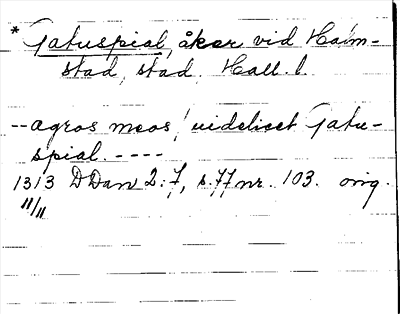 * Gatuspial, åker vid Halm-
stad, stad. Hall. l.
-- agros meos, uidelicet Gatu-
spial. ----
1313 DDan 2:7, s. 77 nr. 103. orig.
11/11